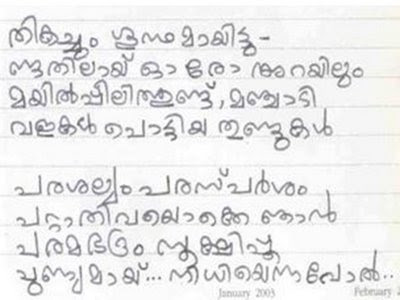 തികച്ചും ശൂന്യമായിട്ടു-
ണ്ടതിലായ് ഓരോ അറയിലും
മയിൽപ്പീലിത്തുണ്ട്, മഞ്ചാടി
വളകൾ പൊട്ടിയ തുണ്ടുകൾ
പരശല്യം പരസ്പർശം
പറ്റാതിവയൊക്കെ ഞാൻ
പരമഭദ്രം സൂക്ഷിപ്പൂ
പുണ്യമായ്... നിധിയെന്നപോൽ..
January 2003 February 2